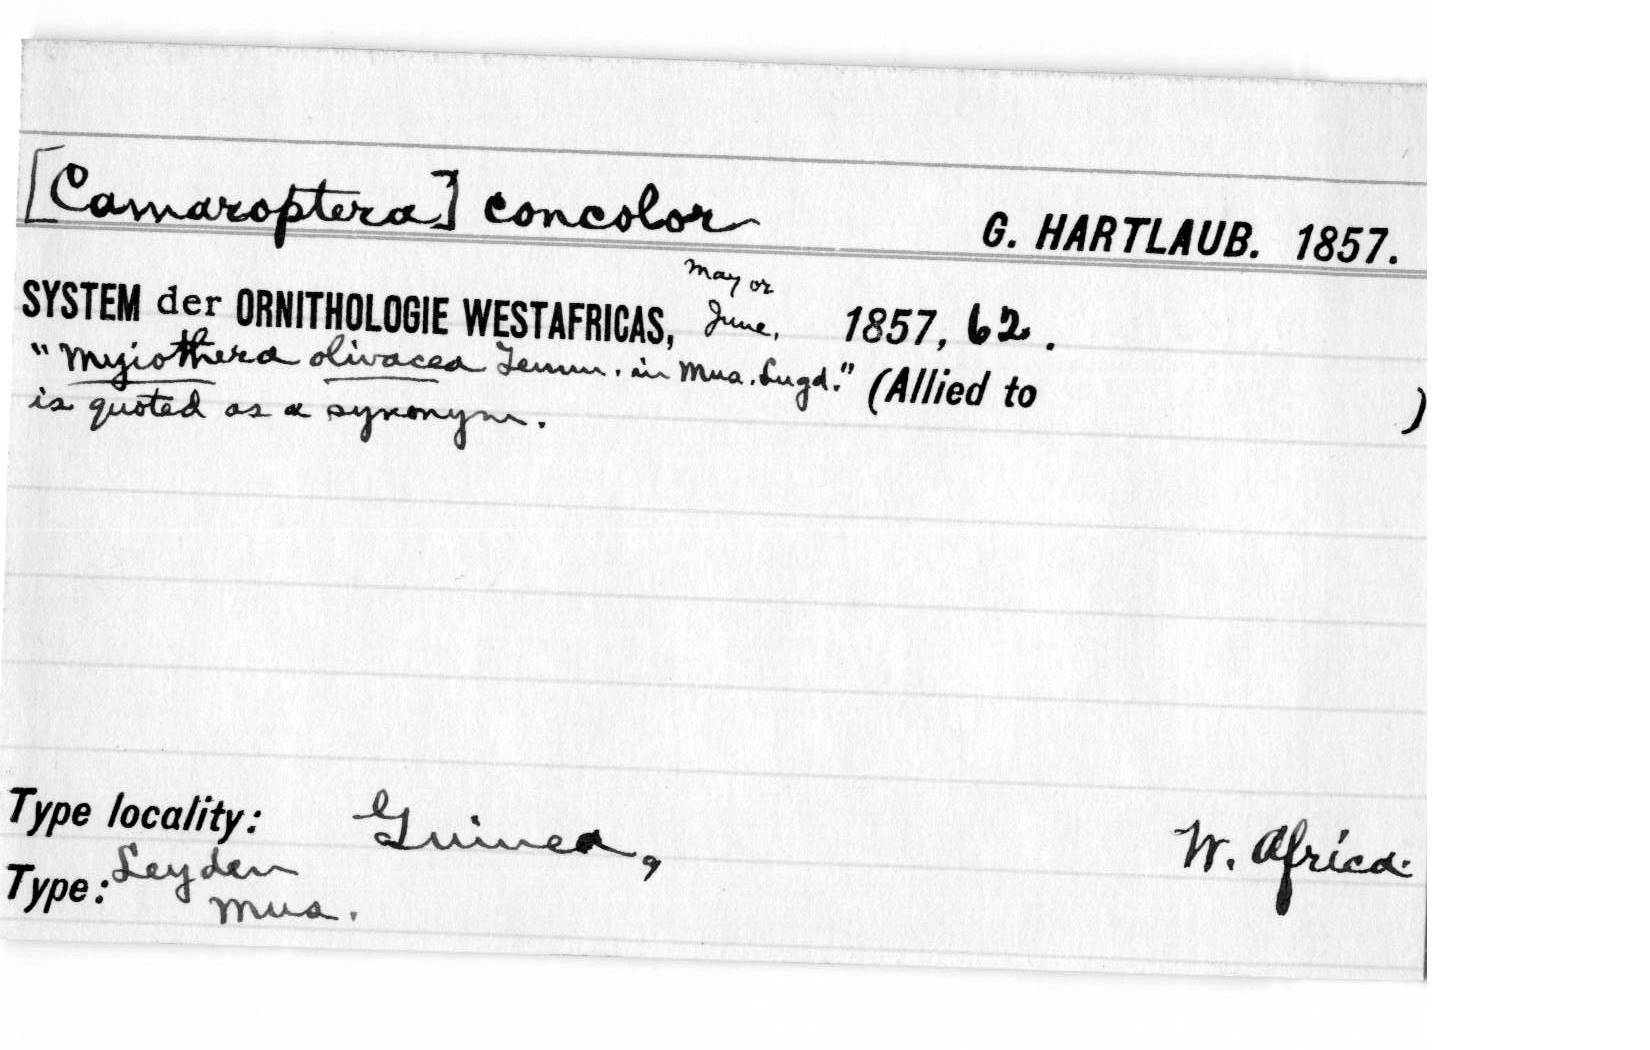 [Camaroptera] concolor G. HARTLAUB. 1857.
May or
SYSTEM der ORNITHOLOGIE WESTAFRICAS, June, 1857, 62.
"Myiothera olivacea Temm. in Mus. Lugd." (Allied to )
is quoted as a synonym.
Type locality: Guinea, W. Africa.
Type: Leyden
Mus.